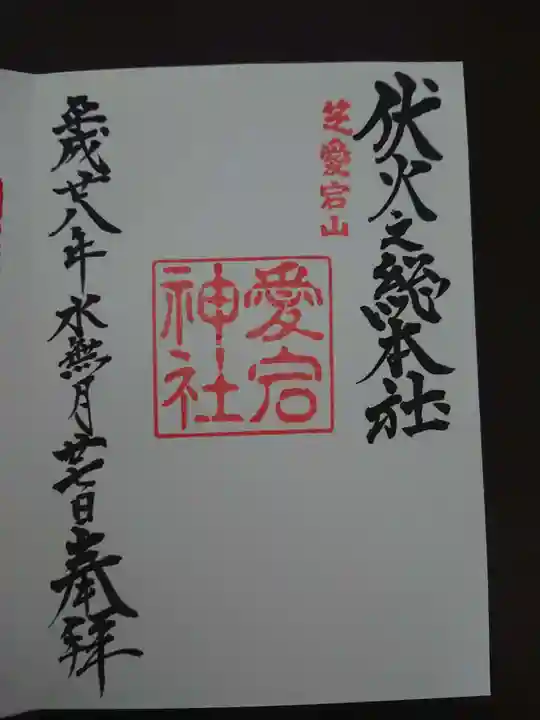 伏火之総本社
芝愛宕山
愛宕
神社
平成廿八年水無月廿七日奉拝